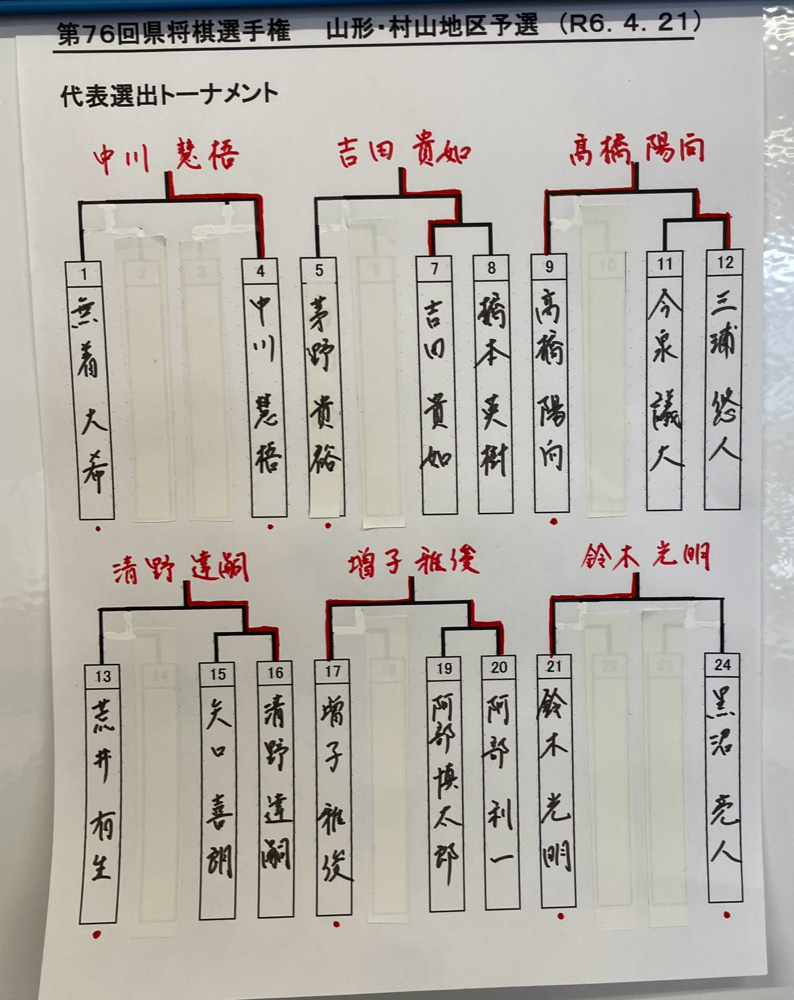 第76回県将棋選手権 山形・村山地区予選 (R6.4.21)
代表選出トーナメント
中川 慧梧
吉田 貴如
高橋 陽向
1
4
5
7
8
9
11
12
無着 大希
中川 慧梧
茅野 貴裕
吉田 貴如
橋本 英樹
高橋 陽向
今泉 議大
三浦 悠人
清野 達嗣
増子 雅俊
鈴木 光明
13
15
16
17
19
20
21
24
荒井 柊生
矢口 喜朗
清野 達嗣
増子 雅俊
阿部 慎太郎
阿部 利一
鈴木 光明
黒沼 亮人